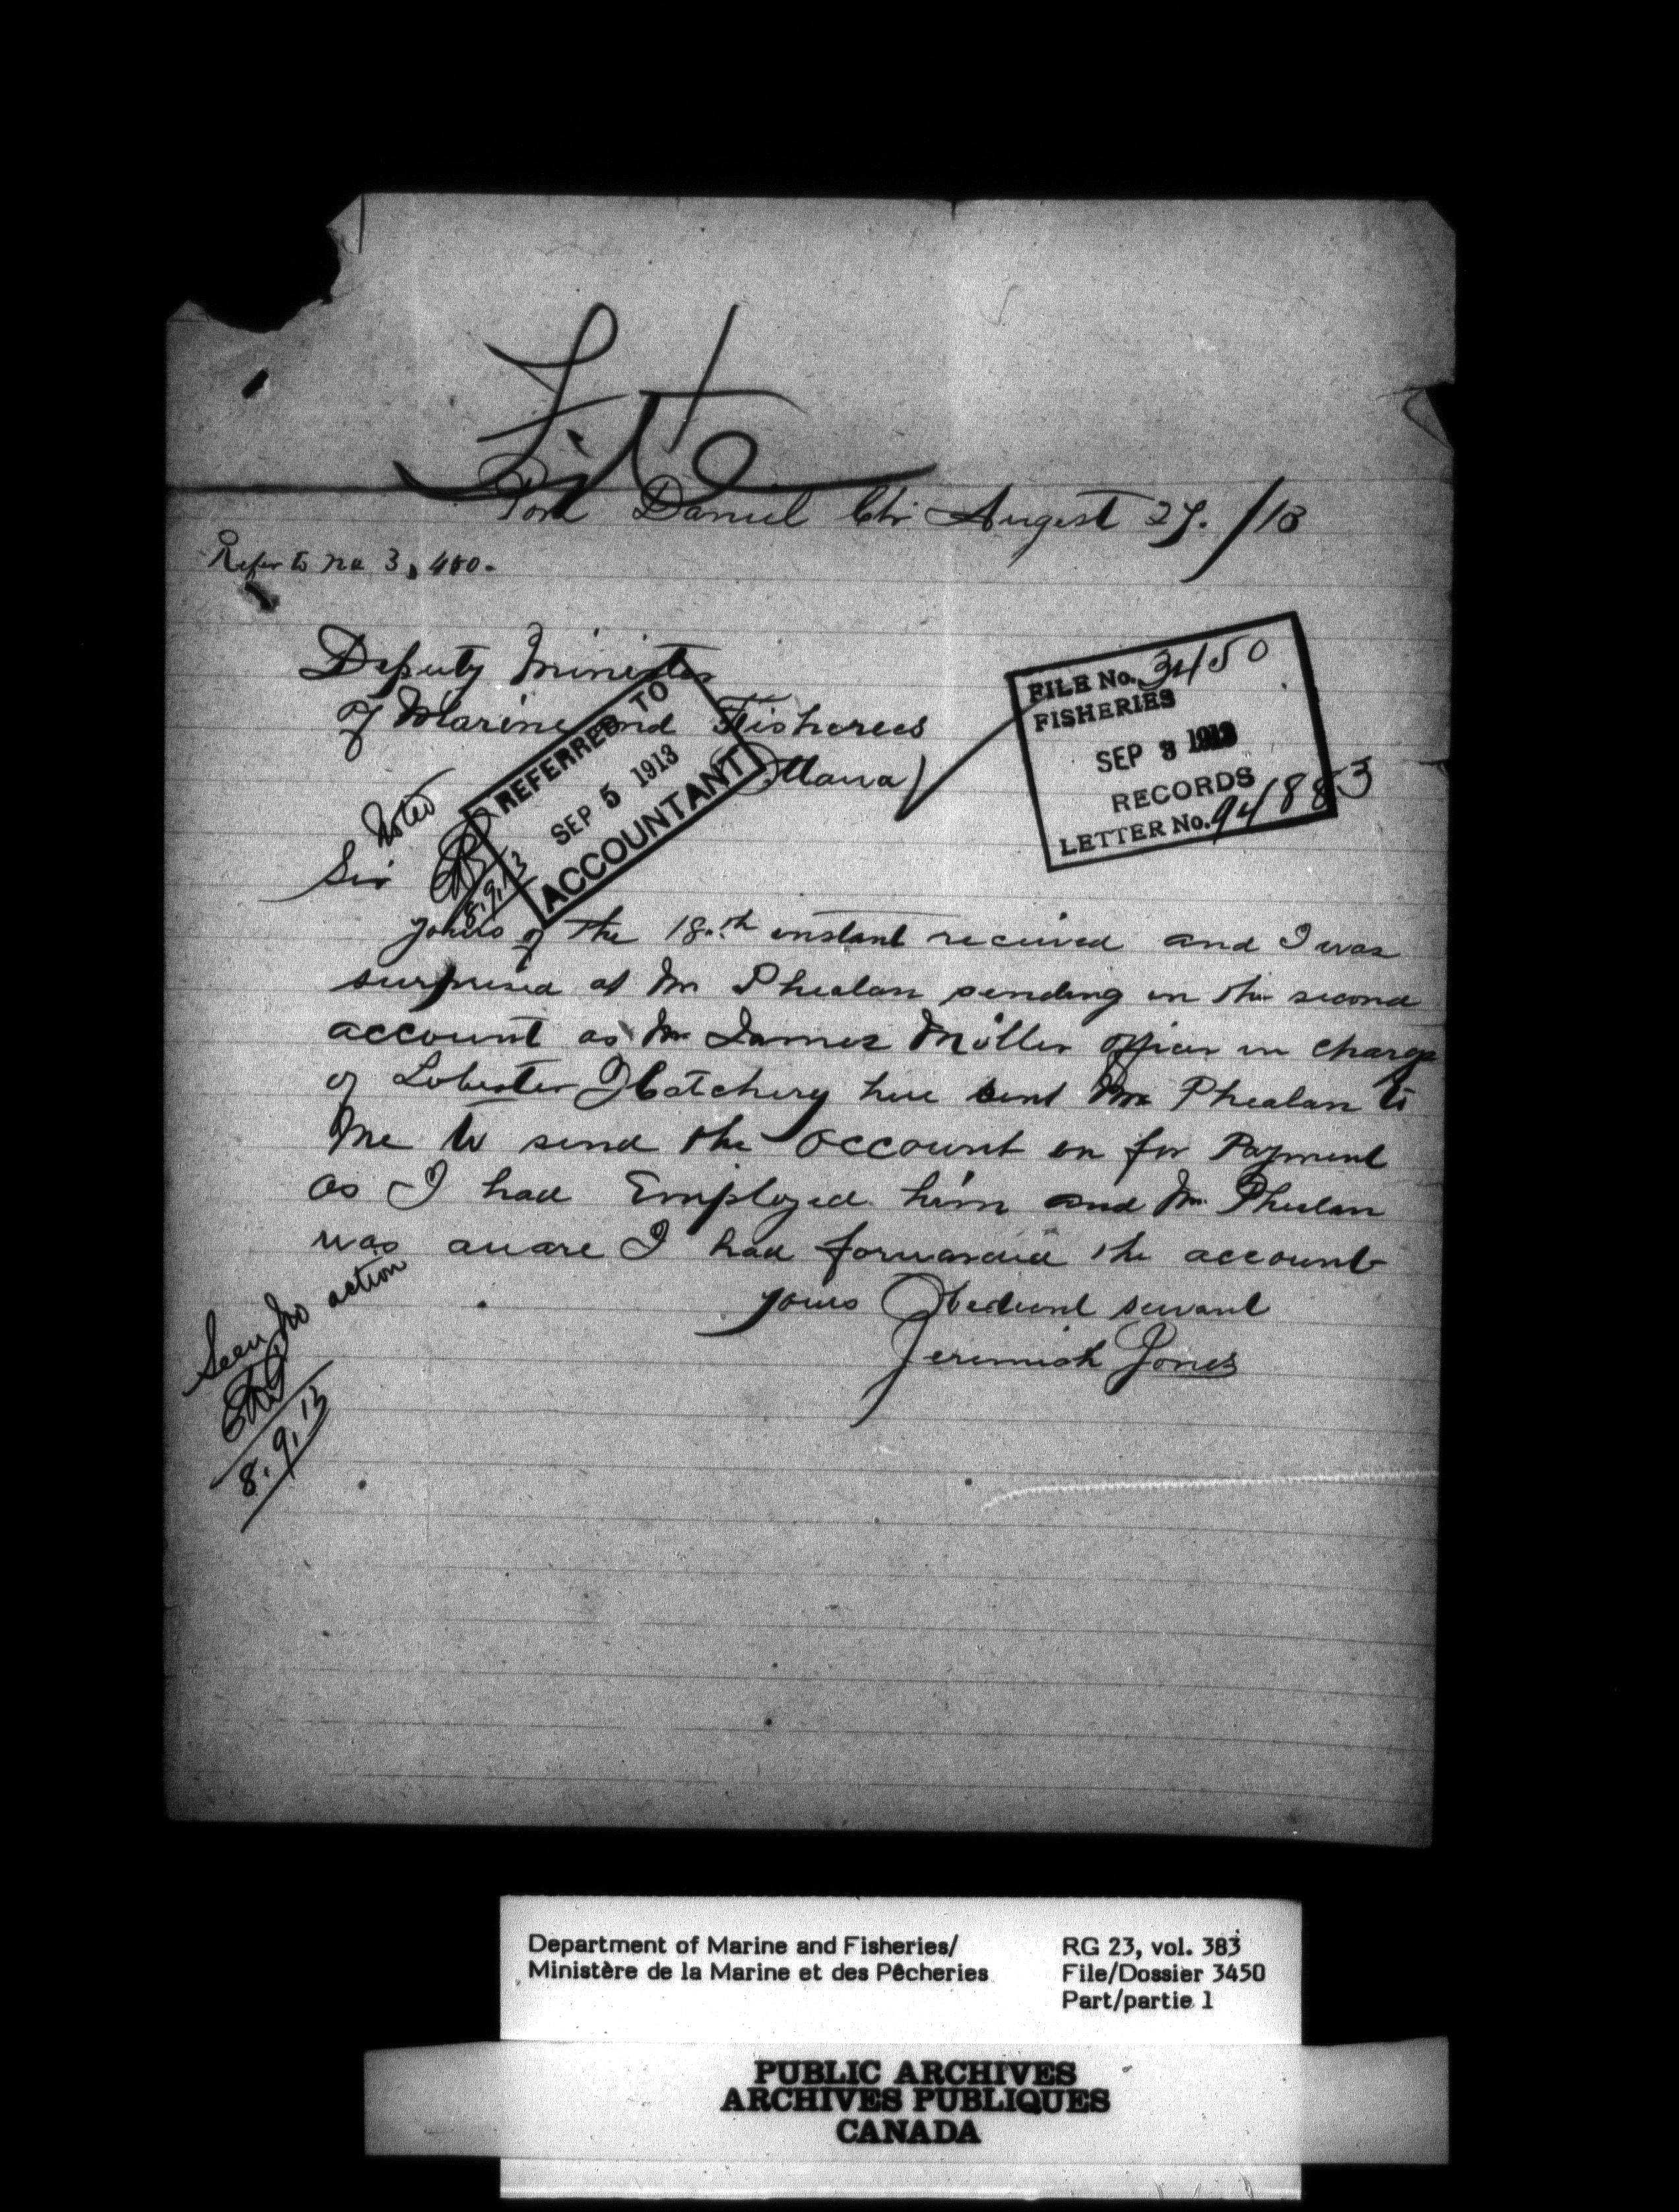 File
Port Daniel Ctr August 27. /13
Refer to No 3,450.
Deputy Minister
of Marine and Fisherees
Ottawa
FILE No. 3450
FISHERIES
SEP 3 1913
RECORDS
LETTER No. 94883
REFERRED TO
SEP 5 1913
ACCOUNTANT
Noted
8.9.13
Sir
yours of the 18.th instant received and I was
surprised at Mr Phealan sending in the second
account as Mr James Miller officer in charge
of Lobster Hatchery here sent Mr Phealan to
Me to send the account on for Payment
as I had Employed him and Mr Phealan
was aware I had forwarded the account
yours Obedient servant
Jeremiah Jones
Seen No action
8.9.13
Department of Marine and Fisheries/
Ministère de la Marine et des Pêcheries
RG 23, vol. 383
File/Dossier 3450
Part/partie 1
PUBLIC ARCHIVES
ARCHIVES PUBLIQUES
CANADA